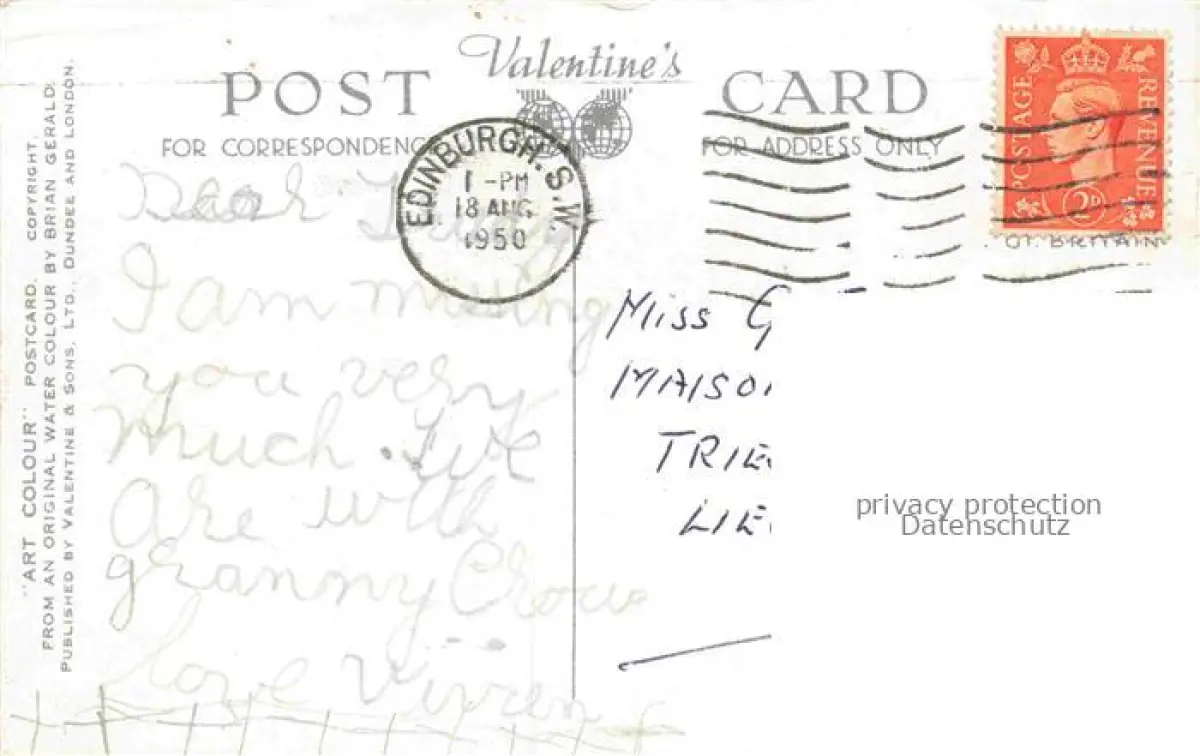 Valentine's
POST CARD
FOR CORRESPONDENC
FOR ADDRESS ONLY
EDINBURGH. S.W.
1 - PM
18 AUG
1950
POSTAGE
REVENUE
2D
OF BRITAIN
"ART COLOUR" POSTCARD. COPYRIGHT.
FROM AN ORIGINAL WATER COLOUR BY BRIAN GERALD.
PUBLISHED BY VALENTINE & SONS, LTD., DUNDEE AND LONDON.
Dear
I am missing
you very
much. We
are with
granny
love
Miss G
MAISO
TRIE
LIE
privacy protection
Datenschutz